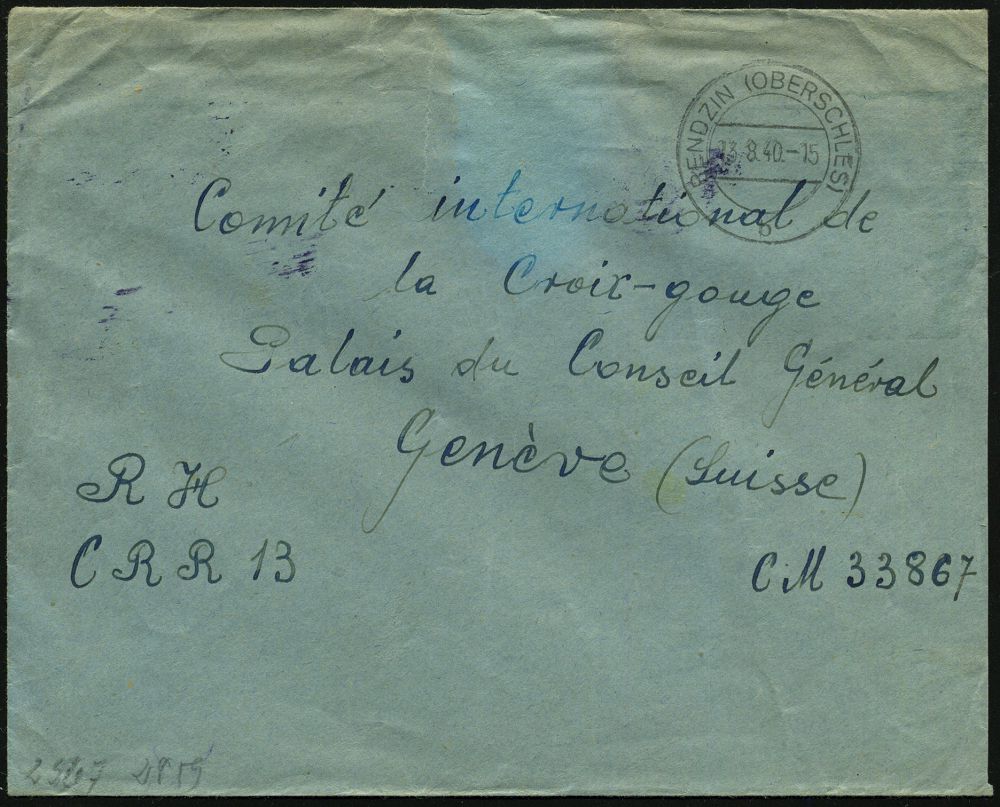 BENDZIN (OBERSCHLES)
13.8.40.-15
b
Comité international de
la Croix-gouge
Palais du Conseil Général
Genève (Suisse)
R H
C R R 13
CM 33867